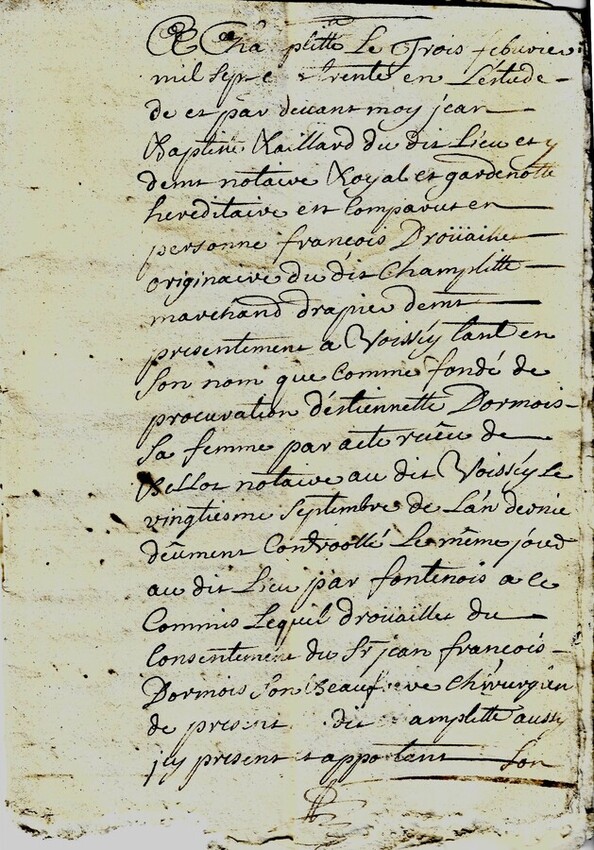 A Champlitte Le Trois febuvrier
mil sept e trente en L'estude
de et par devant moy jean
Baptiste Raillard du dit Lieu et y
demt notaire Royal et gardenotte
hereditaire est Comparut en
personne françois Droüaillet
originaire du dit Champlitte
marchand drapier demt
presentement a Voisséy tant en
son nom que Comme fondé de
procuration d'éstiennette Dormois
sa femme par acte receu de
Bellot notaire au dit Voisséy Le
vingtiesme septembre de L'an dernie
deüment Controollé Le même jour
au dit Lieu par fontenois a ce
Commis Lequel droüaillet du
Consentement du Sr jean françois
Dormois son Beaufreve Chirurgien
de present dit amplitte aussy
icy present et apportant son